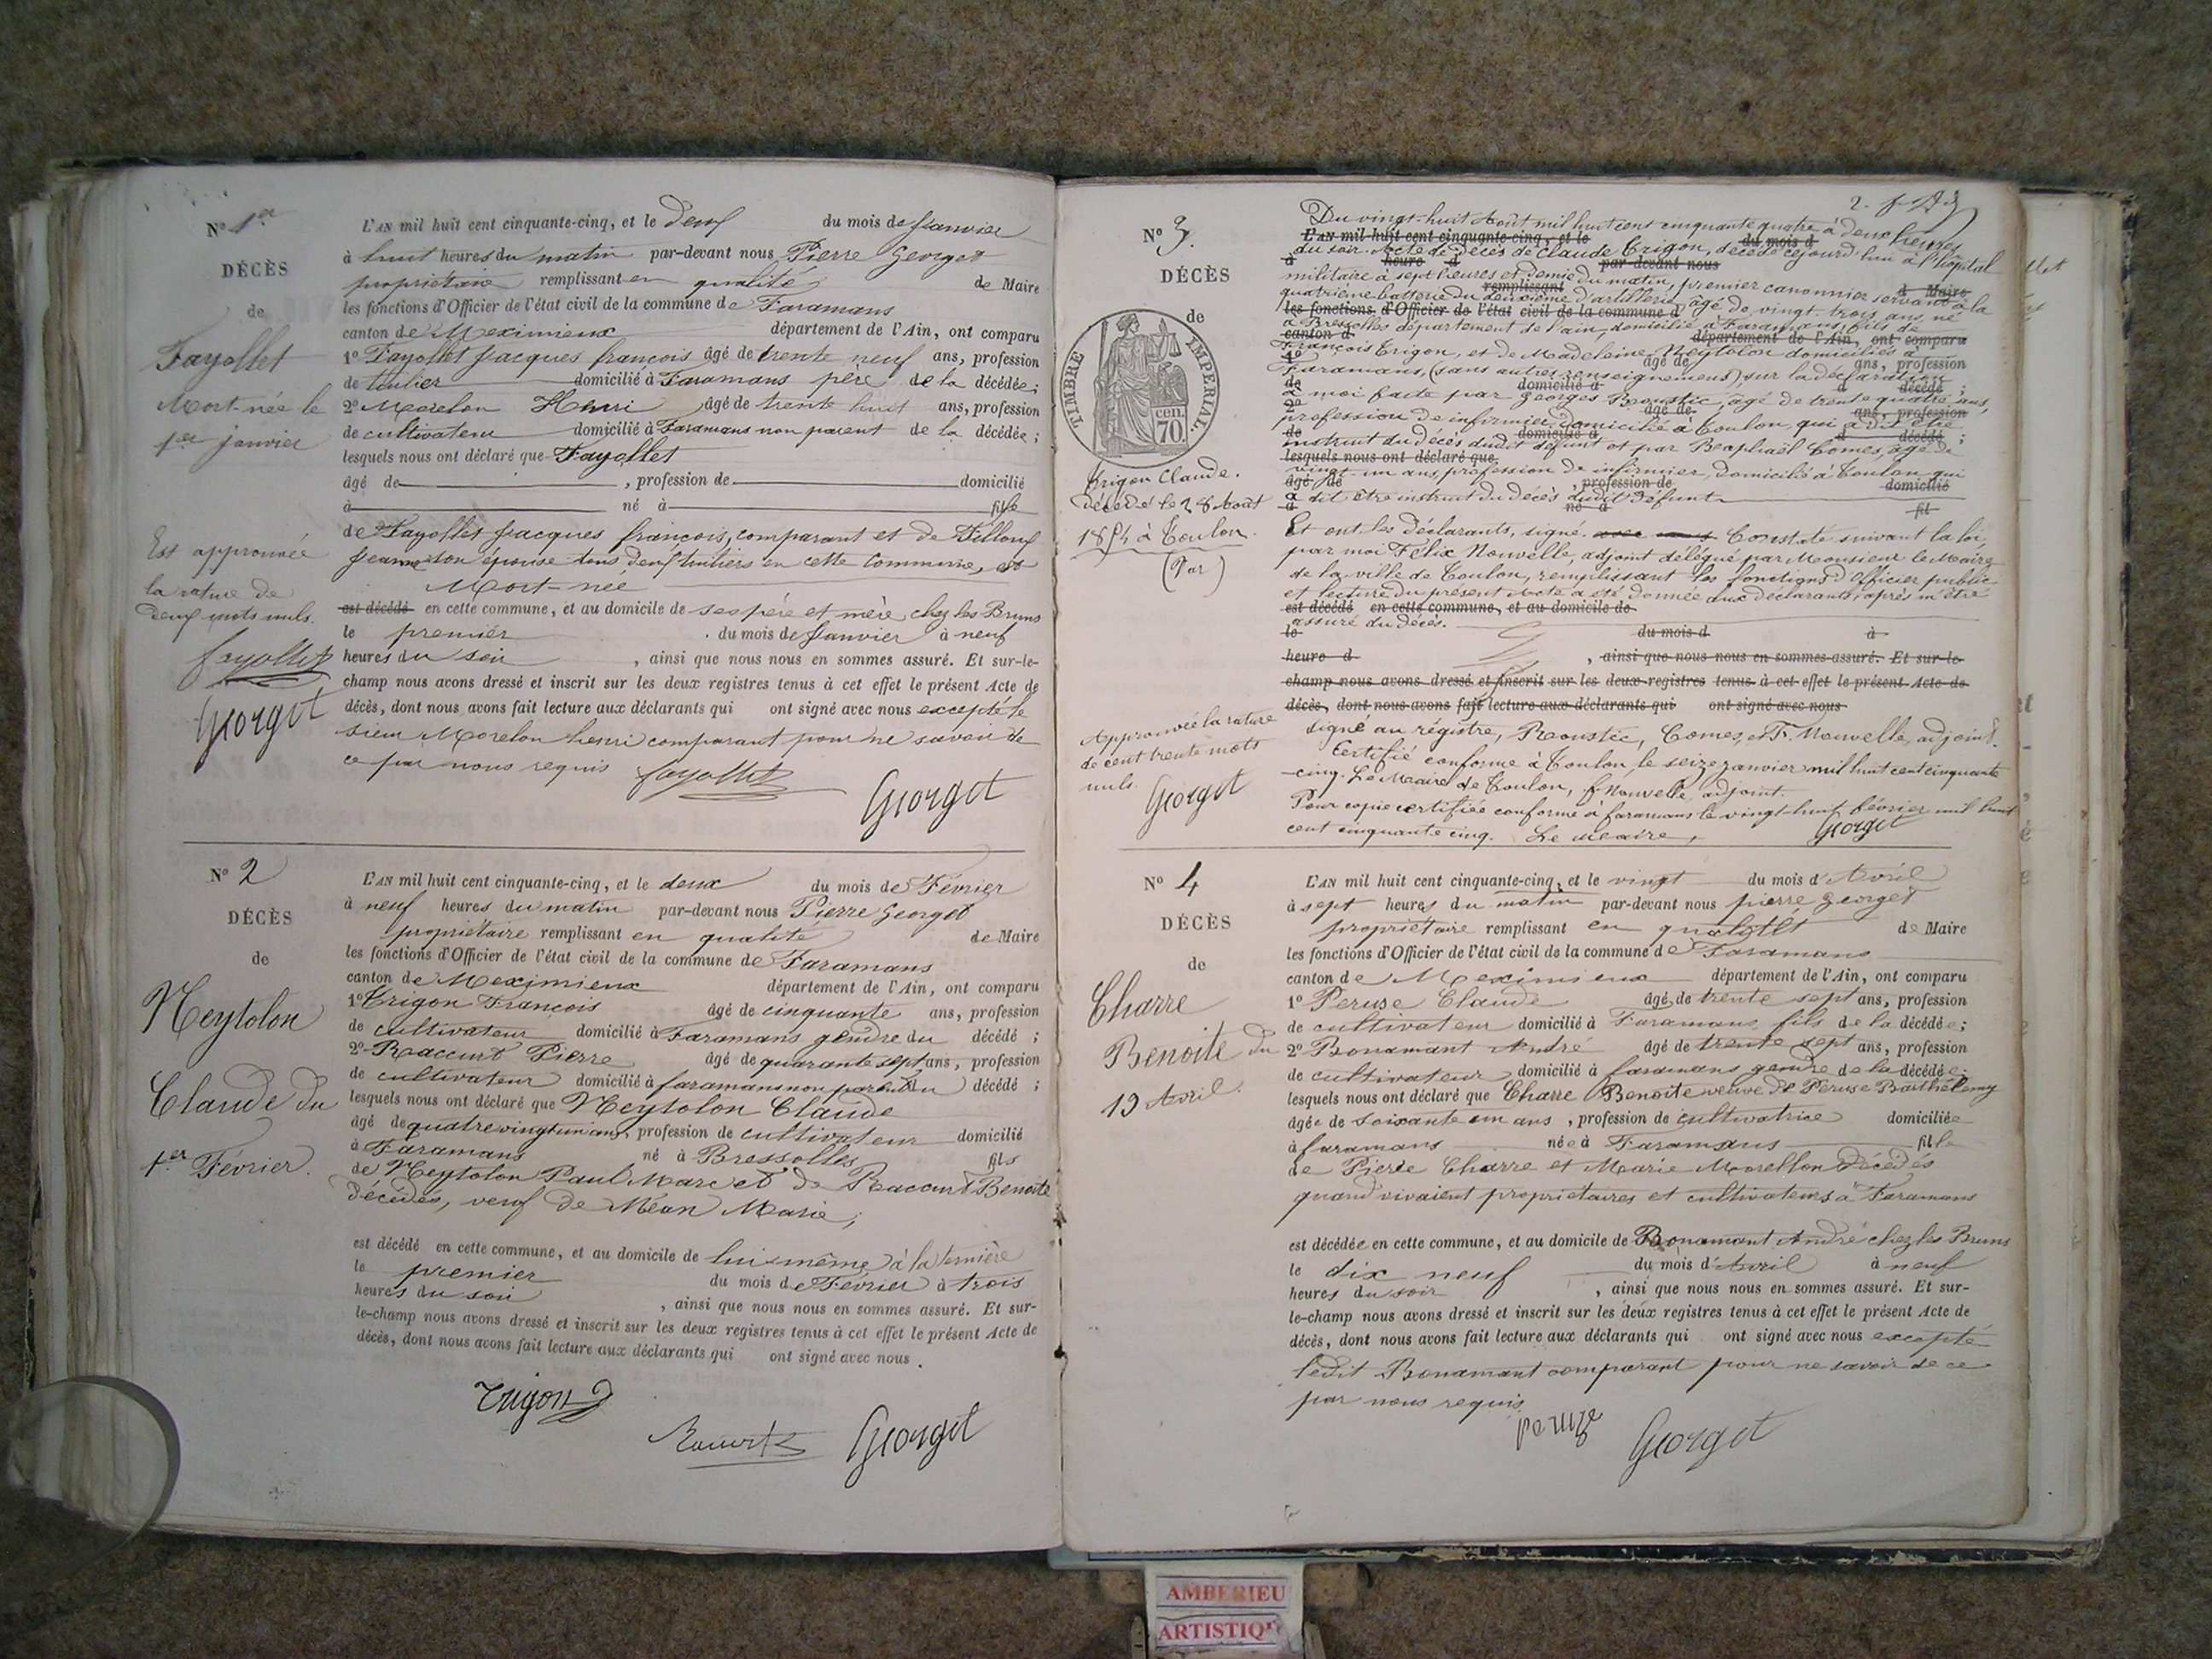 N° 1er
DÉCÈS
de
Fayollet
Mort-née le
1er janvier
Est approuvée
la rature de
deux mots nuls.
fayollet
Georget
L'AN mil huit cent cinquante-cinq, et le deux du mois de Janvier
à huit heures du matin par-devant nous Pierre Georget
propriétaire remplissant en qualité de Maire
les fonctions d'Officier de l'état civil de la commune de Faramans
canton de Meximieux département de l'Ain, ont comparu
1° Fayollet Jacques françois âgé de trente neuf ans, profession
de tuilier domicilié à Faramans père de la décédée;
2° Morelon Henri âgé de trente huit ans, profession
de cultivateur domicilié à Faramans non parent de la décédée;
lesquels nous ont déclaré que Fayollet
âgé de , profession de domicilié
à né à fille
de Fayollet Jacques françois, comparant et de Filloux
Jeanne son épouse tous deux tuiliers en cette commune, est
Mort-née
est décédé en cette commune, et au domicile de ses père et mère chez les Bruns
le premier du mois de Janvier à neuf
heures du soir , ainsi que nous nous en sommes assuré. Et sur-le-
champ nous avons dressé et inscrit sur les deux registres tenus à cet effet le présent Acte de
décès, dont nous avons fait lecture aux déclarants qui ont signé avec nous excepté le
sieur Morelon henri comparant pour ne savoir de
ce par nous requis fayollet
Georget
N° 2
DÉCÈS
de
Neytolon
Claude du
1er Février.
L'AN mil huit cent cinquante-cinq, et le deux du mois de Février
à neuf heures du matin par-devant nous Pierre Georget
propriétaire remplissant en qualité de Maire
les fonctions d'Officier de l'état civil de la commune de Faramans
canton de Meximieux département de l'Ain, ont comparu
1° Trigon François âgé de cinquante ans, profession
de cultivateur domicilié à Faramans gendre du décédé;
2° Raccurt Pierre âgé de quarante sept ans, profession
de cultivateur domicilié à faramans non parent du décédé;
lesquels nous ont déclaré que Neytolon Claude
âgé de quatre vingt un ans, profession de cultivateur domicilié
à Faramans né à Bressolles fils
de Neytolon Paul Marc et de Raccurt Benoite
décédés, veuf de Méan Marie;
est décédé en cette commune, et au domicile de lui même à la
le premier du mois de Février à trois
heures du soir , ainsi que nous nous en sommes assuré. Et sur-
le-champ nous avons dressé et inscrit sur les deux registres tenus à cet effet le présent Acte de
décès, dont nous avons fait lecture aux déclarants qui ont signé avec nous.
Trigon
Raccurt
Georget
N° 3.
DÉCÈS
de
TIMBRE IMPERIAL
70 cen.
Trigon Claude.
décédé le 28 Août
1854 à Toulon.
(Var)
Approuvée la rature
de cent trente mots
nuls.
Georget
2.
Du vingt-huit Août mil huit cent cinquante quatre à deux heures
L'AN mil huit cent cinquante-cinq, et le du mois d
du soir. Acte de décès de Claude Trigon, décédé cejourd'hui à l'hôpital
à heure d par-devant nous
militaire à sept heures et demie du matin, premier canonnier servant à la
remplissant d Maire
quatrième batterie du deuxième d'artillerie, âgé de vingt trois ans, né
les fonctions d'Officier de l'état civil de la commune d
à Bressolles département de l'ain, domicilié à Faramans, fils de
canton d département de l'Ain, ont comparu
François Trigon, et de Madeleine Neytolon domiciliés à
1° âgé de ans, profession
Faramans, (sans autres renseignemens) sur la déclaration
de domicilié à d décédé ;
à moi faite par Georges Roustic, âgé de trente quatre ans,
2° âgé de ans, profession
profession de infirmier, domicilié à Toulon, qui a dit être
de domicilié à d décédé ;
instruit du décès dudit défunt et par Raphaël Comes, âgé de
lesquels nous ont déclaré que
vingt-un ans, profession de infirmier, domicilié à Toulon qui
âgé de , profession de domicilié
a dit être instruit du décès dudit défunt
à né à fil
Et ont les déclarants, signé. avec nous Constaté suivant la loi,
par moi Félix Nouvelle, adjoint délégué par Monsieur le Maire
de la ville de Toulon, remplissant les fonctions d'Officier public
et lecture du présent Acte a été donnée aux déclarants, après m'être
est décédé en cette commune, et au domicile de
assuré du décès.
le du mois d à
heure d , ainsi que nous nous en sommes assuré. Et sur-le-
champ nous avons dressé et inscrit sur les deux registres tenus à cet effet le présent Acte de
décès, dont nous avons fait lecture aux déclarants qui ont signé avec nous
signé au régistre, Roustic, Comes, et F. Nouvelle, adjoint.
Certifié conforme à Toulon, le seize janvier mil huit cent cinquante
-cinq. Le Maire de Toulon, f. Nouvelle, adjoint.
Pour copie certifiée conforme à faramans le vingt-huit février mil huit
cent cinquante cinq. Le Maire, Georget
N° 4
DÉCÈS
de
Charre
Benoite du
19 Avril.
L'AN mil huit cent cinquante-cinq, et le vingt du mois d'Avril
à sept heures du matin par-devant nous pierre Georget
propriétaire remplissant en qualité de Maire
les fonctions d'Officier de l'état civil de la commune de Faramans
canton de Meximieux département de l'Ain, ont comparu
1° Peruse Claude âgé de trente sept ans, profession
de cultivateur domicilié à Faramans fils de la décédée;
2° Bonamant André âgé de trente sept ans, profession
de cultivateur domicilié à faramans gendre de la décédée;
lesquels nous ont déclaré que Charre Benoite veuve de Peruse Barthélemy
âgée de soixante un ans , profession de cultivatrice domiciliée
à faramans née à Faramans fille
de Pierre Charre et Marie Morellon décédés
quand vivaient propriétaires et cultivateurs à Faramans
est décédée en cette commune, et au domicile de Bonamant André chez les Bruns
le dix neuf du mois d'Avril à neuf
heures du soir , ainsi que nous nous en sommes assuré. Et sur-
le-champ nous avons dressé et inscrit sur les deux registres tenus à cet effet le présent Acte de
décès, dont nous avons fait lecture aux déclarants qui ont signé avec nous excepté
ledit Bonamant comparant pour ne savoir de ce
par nous requis.
peruze
Georget
AMBERIEU
ARTISTIQ